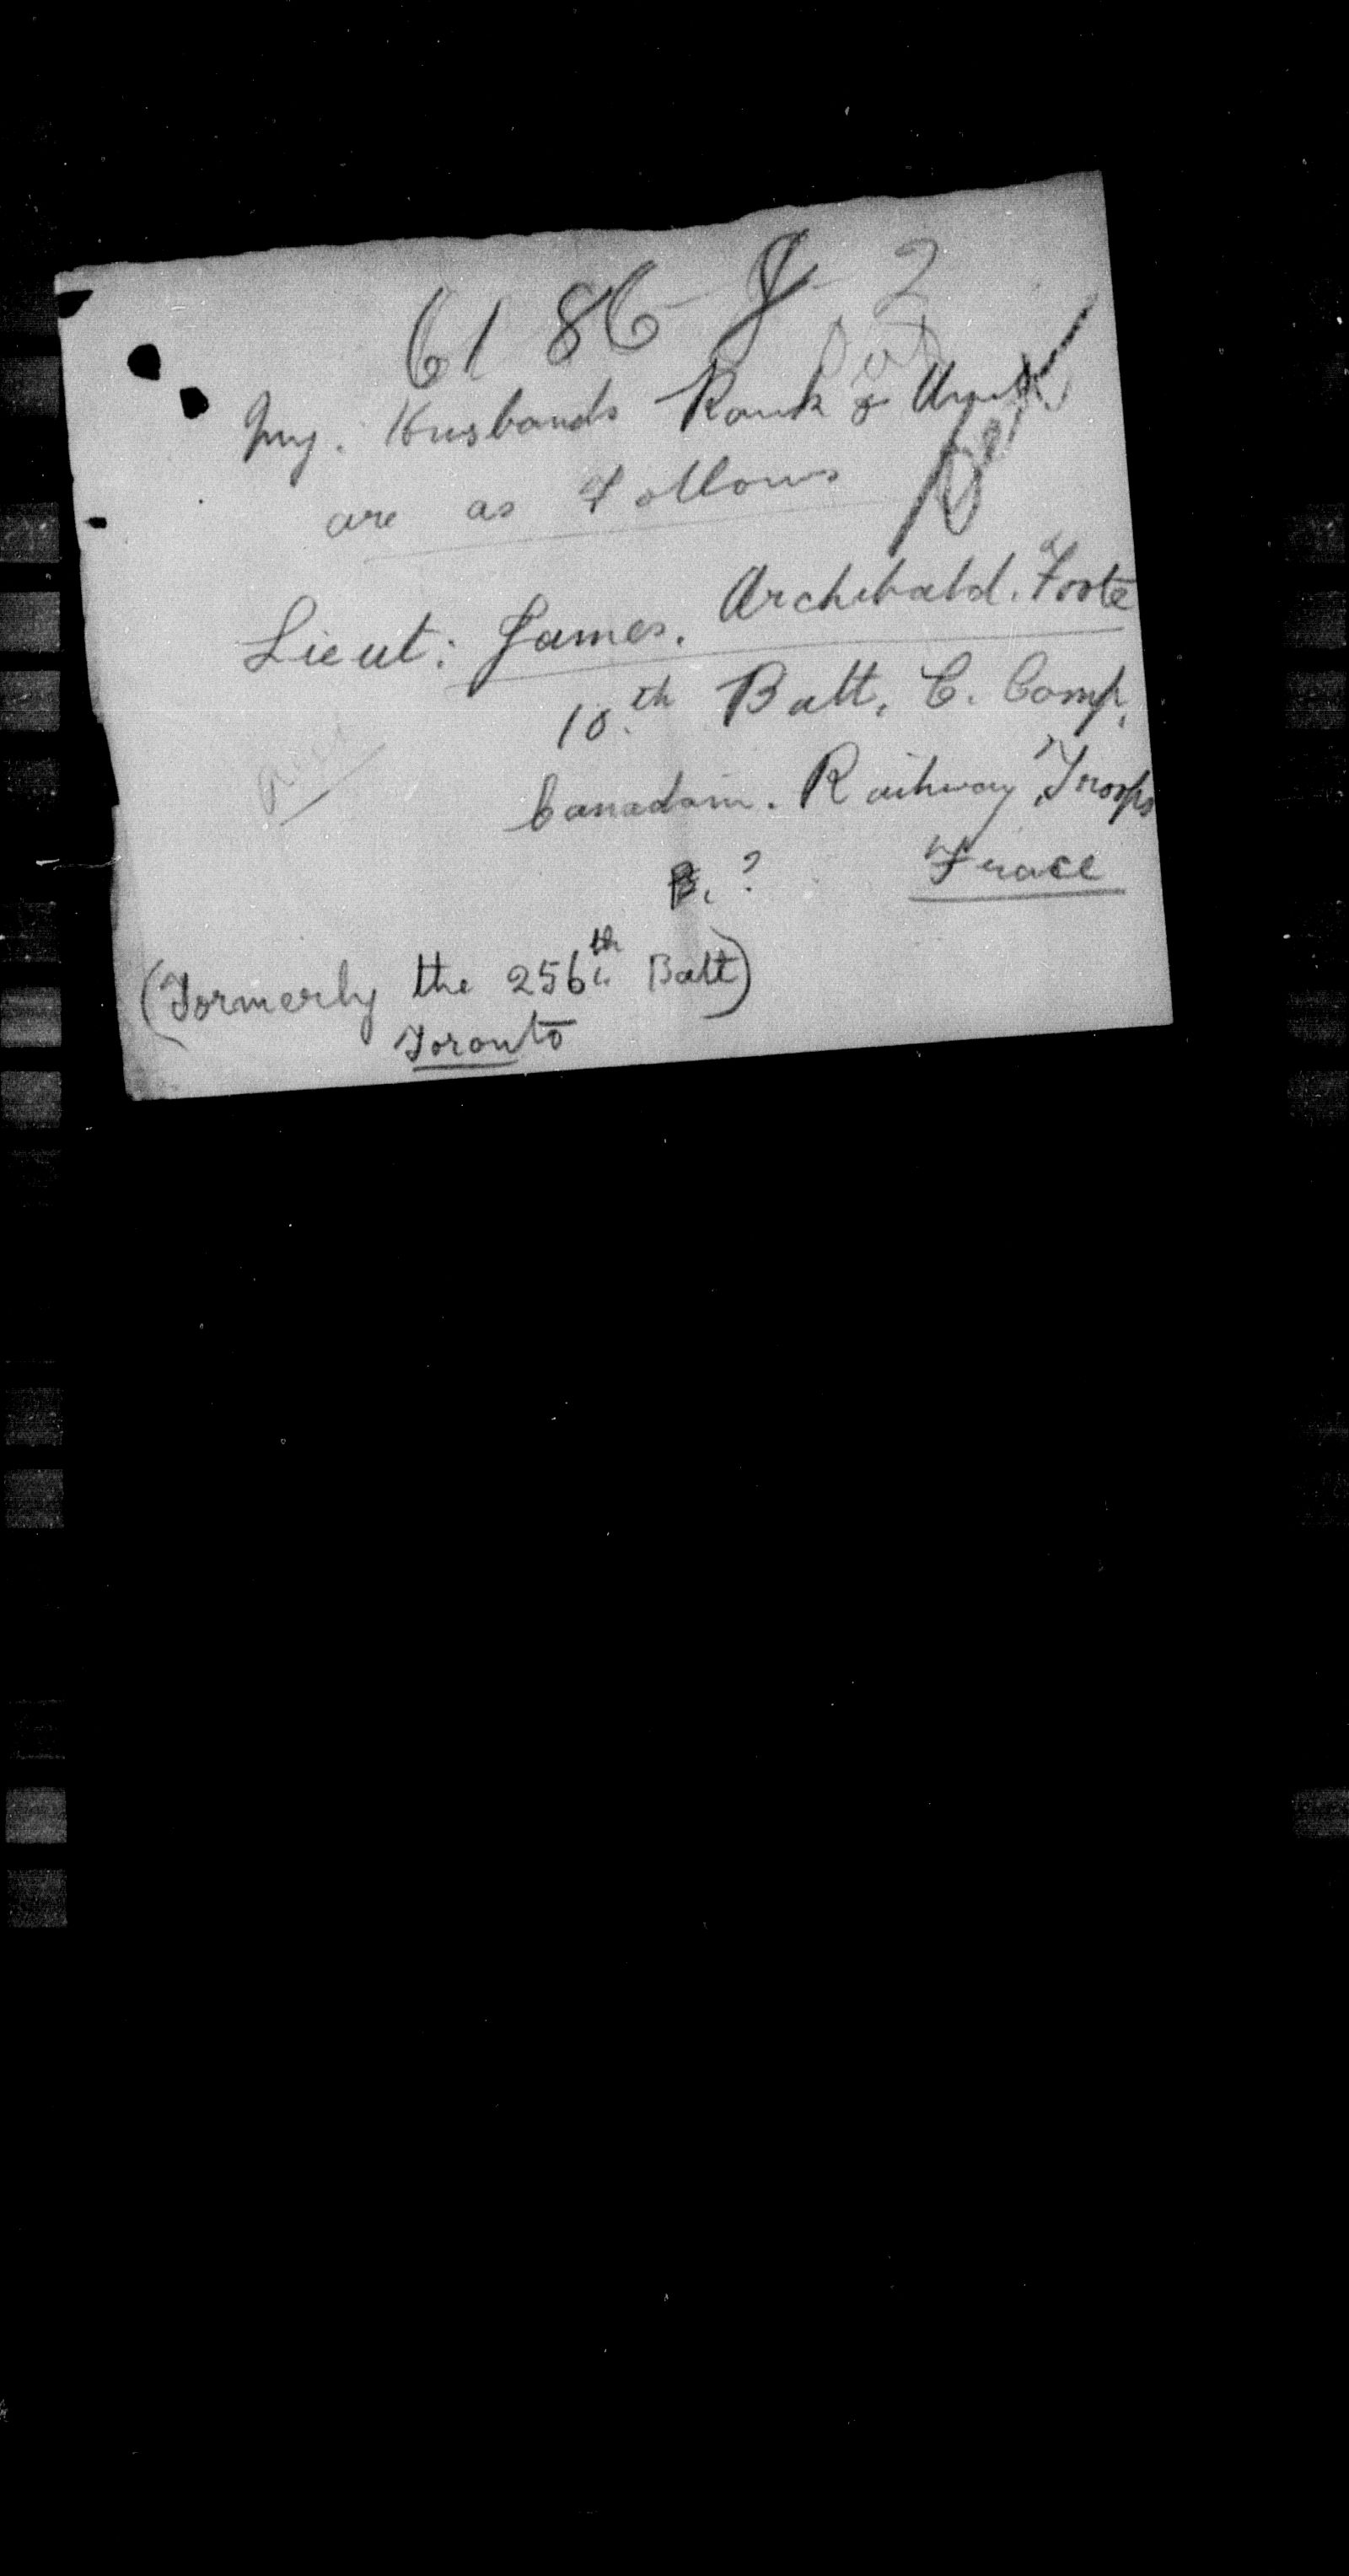 61 86 J 2
My. Husbands Rank & Unit
are as Follows
Lieut: James. Archibald. Foote
10th Batt, C. Comp,
Canadain. Railway, Troops
B. ? Frace
(Formerly the 256th Batt)
Toronto